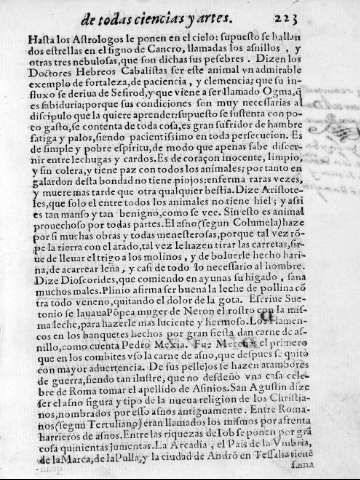 de todas ciencias y artes. 223
Hasta los Astrologos le ponen en el cielo: supuesto se hallan
dos estrellas en el signo de Cancro, llamadas los asnillos, y
otras tres nebulosas, que son dichas sus pesebres. Dizen los
Doctores Hebreos Cabalistas ser este animal vn admirable
exemplo de fortaleza, de paciencia, y clemencia; que su in-
fluxo se deriua de Sefirod, y que viene a ser llamado Ogma, q̃
es sabiduria; porque sus condiciones son muy necessarias al
discipulo que la quiere aprender: supuesto se sustenta con po-
to gasto, se contenta de toda cosa, es gran sufridor de hambre
fatiga y palos, siendo pacientissimo en toda persecucion. Es
de simple y pobre espiritu, de modo que apenas sabe discer-
nir entre lechugas y cardos. Es de coraçon inocente, limpio,
y sin colera, y tiene paz con todos los animales; por tanto en
galardon desta bondad no tiene piojos: enferma raras vezes,
y muere mas tarde que otra qualquier bestia. Dize Aristote-
les, que solo el entre todos los animales no tiene hiel; y assi
es tan manso y tan benigno, como se vee. Sin esto es animal
prouechoso por todas partes. El asno (segun Columela) haze
por si muchas obras y todas menesterosas, porque tal vez rõ-
pe la tierra con el arado, tal vez le hazen tirar las carretas, sir-
ue de lleuar el trigo a los molinos, y de boluerle hecho hari-
na, de acarrear leña, y casi de todo lo necessario al hombre.
Dize Dioscorides, que comiendo en ayunas su higado, sana
muchos males. Plinio afirma ser buena la leche de pollina cõ
tra todo veneno, quitando el dolor de la gota. Escriue Sue-
tonio se lauaua Põpea muger de Neron el rostro con la mis-
ma leche, para hazerle mas luciente y hermoso. Los Flamen-
cos en los banquetes hechos por gran fiesta dan carne de as-
nillo, como cuenta Pedro Mexia. Fue el primero
que en los combites vsò la carne de asno, que despues se quitò
con mayor aduertencia. De sus pellejos te hazen atambores
de guerra, siendo tan ilustre, que no desdeño vna casa cele-
bre de Roma tomar el apellido de Asinios. San Agustin dize
ser el asno figura y tipo de la nueua religion de los Christia-
nos, nombrados por esso asnos antiguamente. Entre Roma-
nos (segũ Tertuliano) eran llamados los mismos por afrenta
harrieros de asnos. Entre las riquezas de Iob se ponen por grã
cosa quinientas jumentas. La Arcadia, el Pais de la Vmbria,
de la Marca, de la Pulla, y la ciudad de Andrõ en Tessalia tienẽ
fama